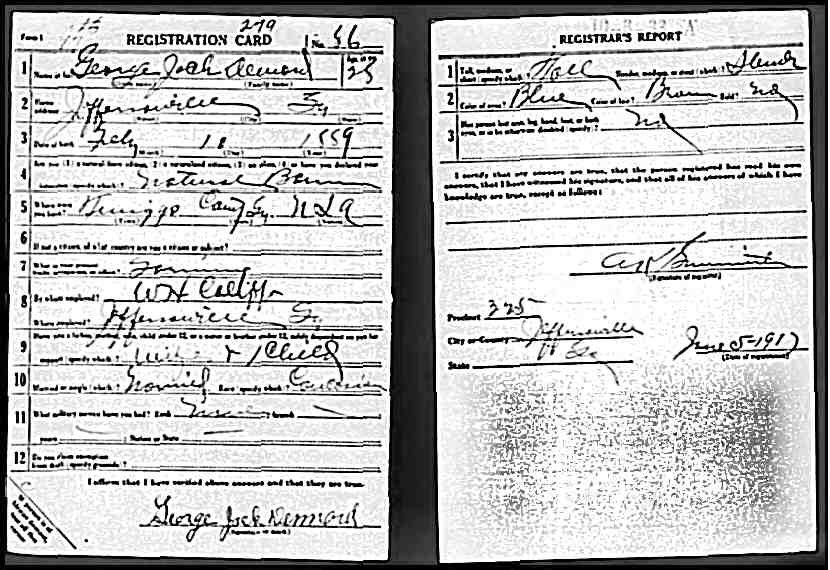 279
Form 1 REGISTRATION CARD No. 56
1 Name in full George Jack Denmond Age, in yrs 25
(Given name) (Family name)
2 Home address Jeffersonville Ky
3 Date of birth Feby 18 1889
(Month) (Day) (Year)
4 Are you (1) a natural born citizen, (2) a naturalized citizen, (3) an alien, (4) or have you declared your
intention (specify which)? Natural Born
5 Where were you born? Ky
6 If not a citizen, of what country are you a citizen or subject?
7 What is your present trade, occupation, or office? Farming
8 By whom employed? WH
Where employed? Jeffersonville Ky
9 Have you a father, mother, wife, child under 12, or a sister or brother under 12, solely dependent on you for
support (specify which)? Wife + 1 Child
10 Married or single (which)? Married Race (specify which)? Caucasian
11 What military service have you had? Rank None ; branch
years ; Nation or State
12 Do you claim exemption from draft (specify grounds)?
I affirm that I have verified above answers and that they are true.
George Jack Denmond
(Signature or mark)
REGISTRAR'S REPORT
1 Tall, medium, or short (specify which)? Tall Slender, medium, or stout (which)? Slender
2 Color of eyes? Blue Color of hair? Brown Bald? No
3 Has person lost arm, leg, hand, foot, or both eyes, or is he otherwise disabled (specify)? No
I certify that my answers are true, that the person registered has read his own
answers, that I have witnessed his signature, and that all of his answers of which I have
knowledge are true, except as follows:
(Signature of registrar)
Precinct 325
City or County Jeffersonville
State Ky
June 5-1917
(Date of registration)